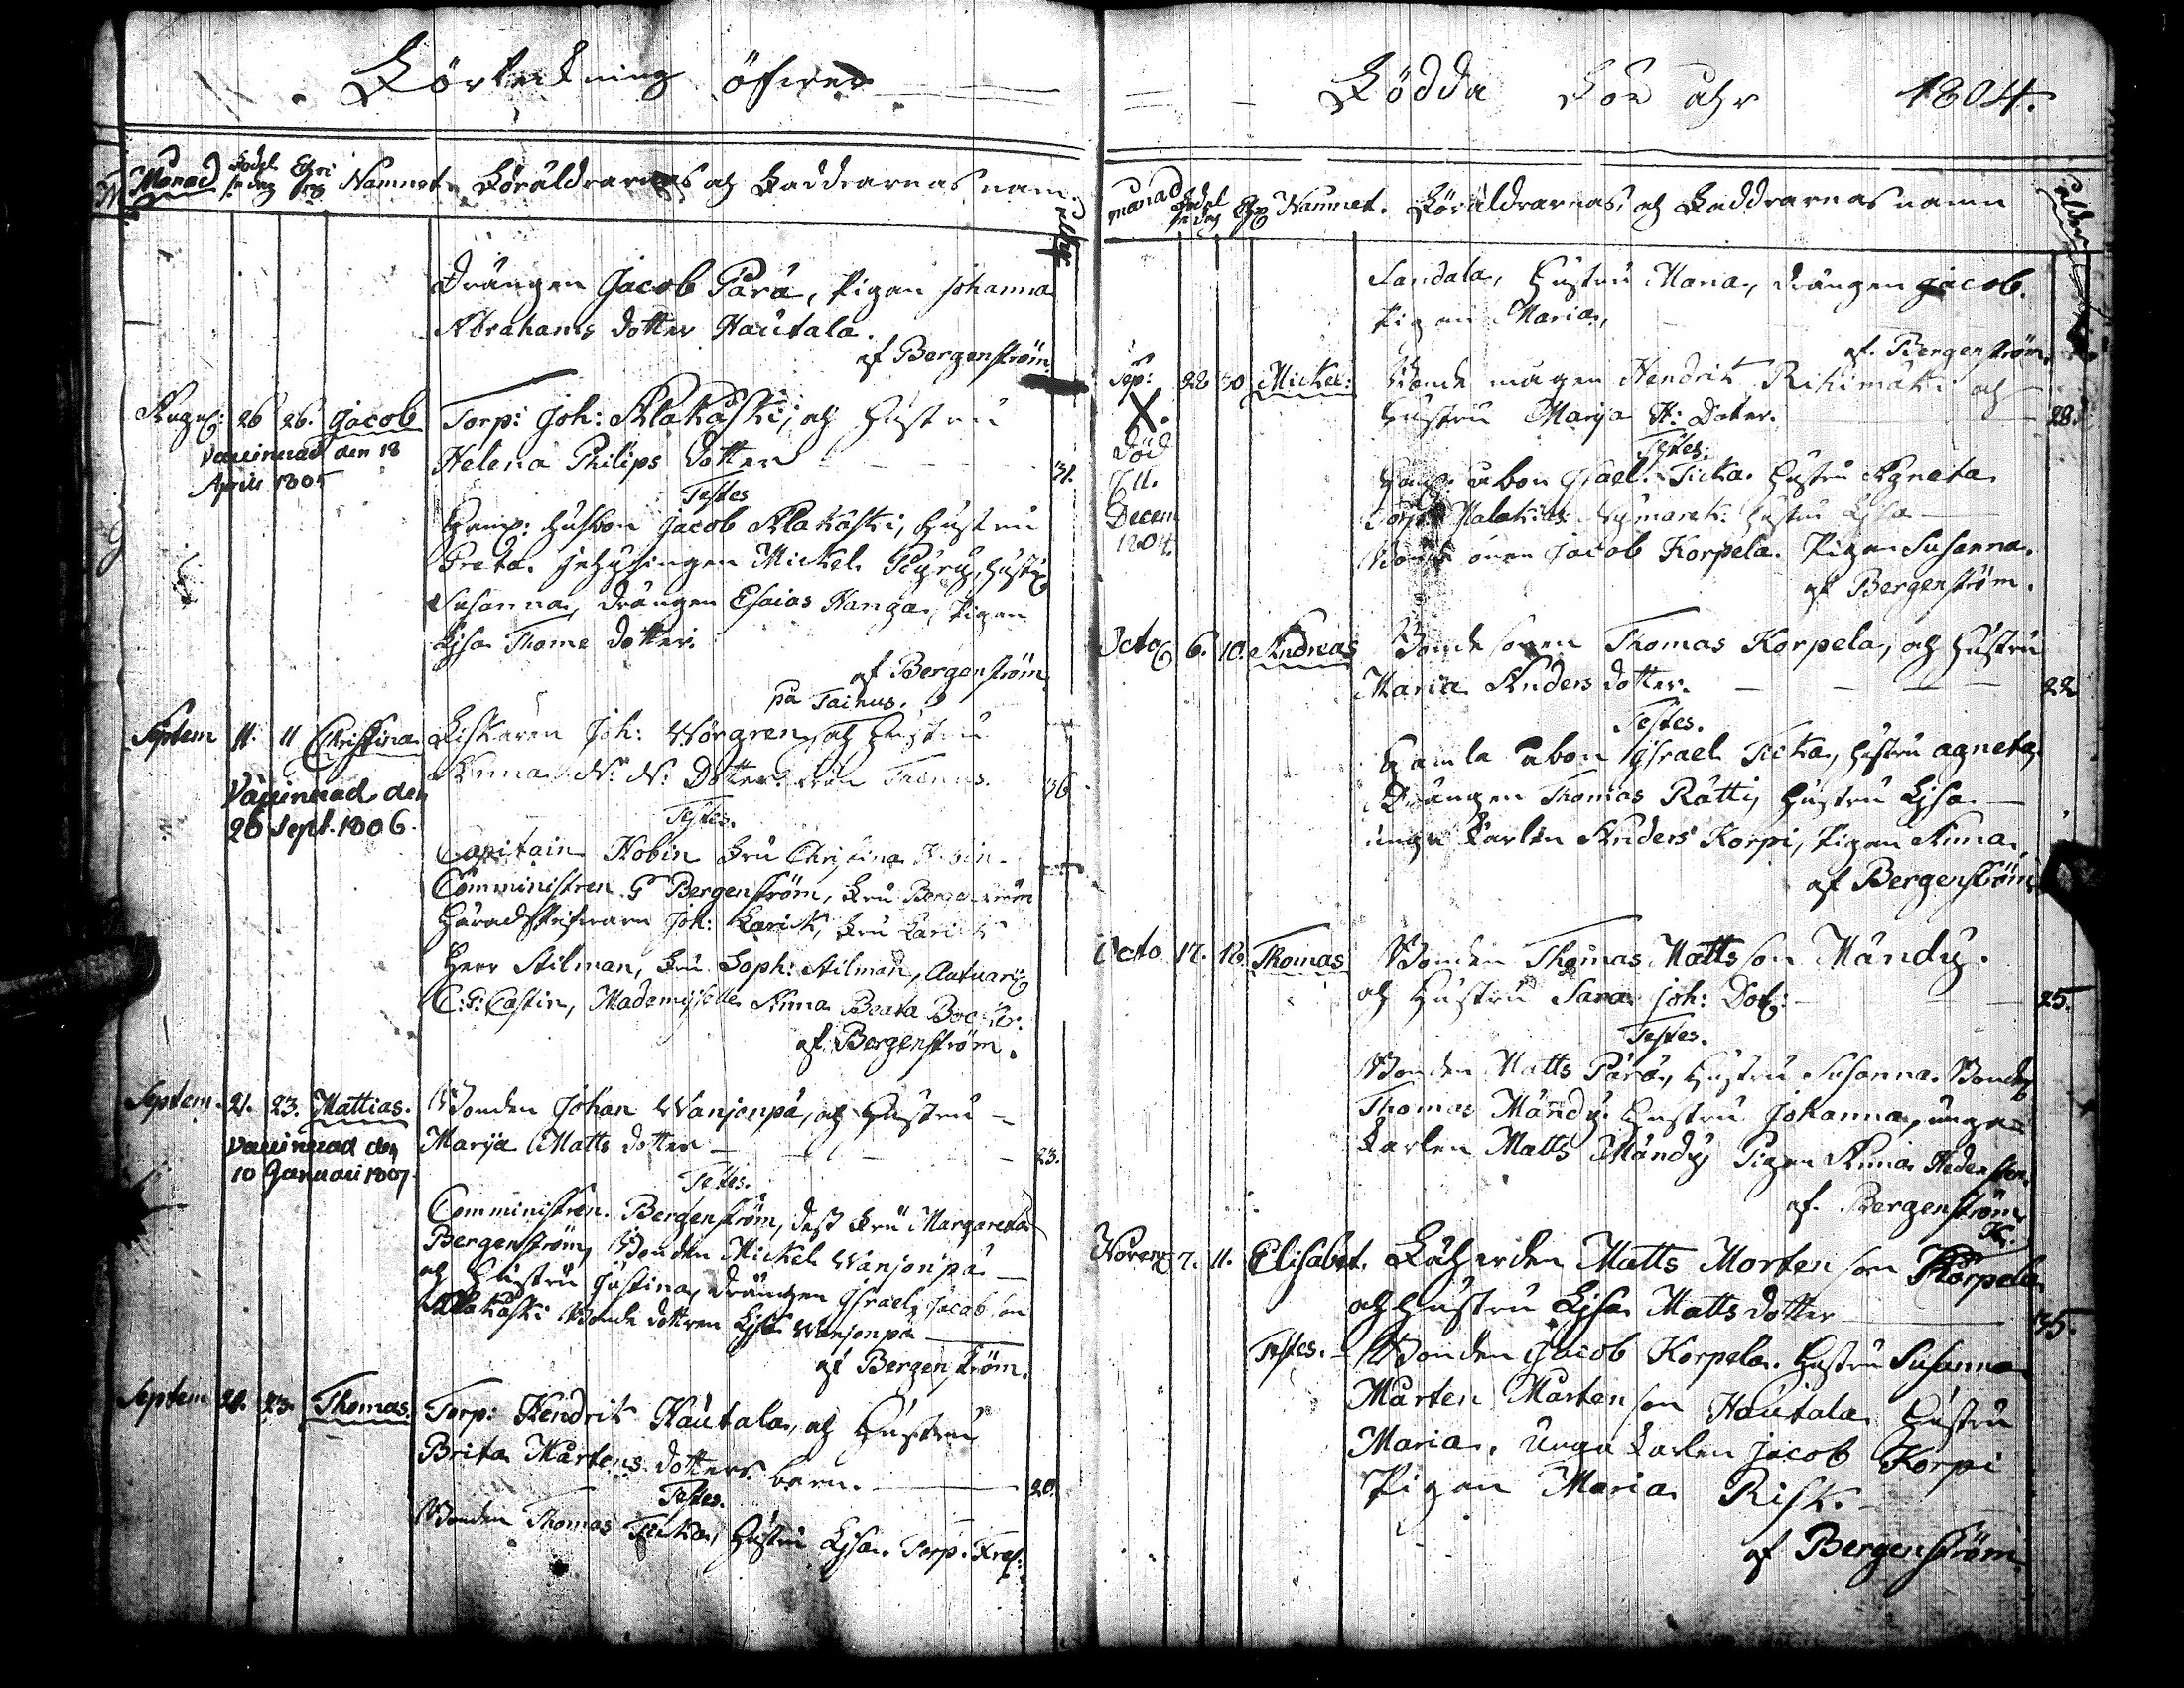 Förtekning öfwer
Månad Födel se dag Chri stg Namnet Föräldrarnas och Faddrarnas nam ålder
Drängen Jacob Pärä, Pigan Johanna
Abrahams dotter Hautala.
af Bergenström
August: 26 26. Jacob Torp: Joh: Alakäski, och Hustru
Vaccinerad den 18 Helena Philips dotter 31.
April 1805
Testes
Gamb: husbon Jacob Alakäski, hustru
Greta. Inhysingen Mickel Pyry, hustr
Susanna, Drängen Esaias Kanga, Pigan
Lisa Thome dotter.
af Bergenström
på Tainus.
Septem 11. 11 Christina Fiskaren Joh: Wörgren, och Hustru
Anna N: N: Dotter från Tainus. 36
Vaccinerad den
26 Sept. 1806.
Testes.
Capitain Kobin Fru Christina
Comministren G Bergenström, Fru Bergenström
Häradsskrifvaren Joh: Earick, Fru Earick
Herr Ailman, Fru Soph: Ailman, Autuari
C: G: Castin, Mademoiselle Anna Beata
af Bergenström.
Septem. 21. 23. Mattias. Bonden Johan Wanjonpä, och Hustru
Vaccinerad den Marija Matts dotter 23.
10 Januari 1807.
Testes.
Comministren. Bergenström, dess Fru Margareta
Bergenström, Bonden Mickel Wanjonpä
och Hustru Justina, Drängen Israel Jacob son
Alakäski Bonde dottren Lisa Wanjonpä
af Bergenström.
Septem 20. 23. Thomas. Torp: Hendrik Hautala, och Hustru
Brita Mårtens dotters barn. 20.
Testes.
Bonden Thomas Ticka, Hustru Lisa. Torp:
Födda För åhr 1804.
månad Födel se dag Chr Namnet. Föräldrarnas, och Faddrarnas namn ålder
Sandala, Hustru Maria, Drängen Jacob.
Pigan Maria,
af. Bergenström.
Sep: 28 30 Mickel: Bonde mågen Hendrik Rikimäki och
X. Hustru Marija H: Doter. 28.
Död Testes.
Isael. Ticka. Hustru Agneta
Decem
1804.
Torp: Malakias Nymarck: Hustru Lisa
Jacob Korpela. Pigan Susanna.
af Bergenström.
Octo 6. 10. Andreas Bonde sonen Thomas Korpela, och Hustru
Maria Anders dotter. 22
Testes.
Gamla Åbon Israel Ticka, Hustru Agneta
Drängen Thomas Rätti, Hustru Lisa
unga Karlen Anders Korpi, Pigan Anna,
af Bergenström
Octo 17. 18. Thomas Bonden Thomas Matts son Mändy.
och Hustru Sara Joh: Dot: 25.
Testes.
Bonden Matts Pärä, Hustru Susanna. Bond
Thomas Mändy. Hustru Johanna, unga
Karlen Matts Mändy Pigan Anna
af. Bergenström
Novem 7. 11. Elisabet. Matts Morten son Korpela
och Hustru Lisa Matts dotter 35.
Testes. Bonden Jacob Korpela. Hustru Susanna
Mårten Mårten son Hautala Hustru
Maria. Unga Karlen Jacob Korpi
Pigan Maria Risk.
af Bergenström